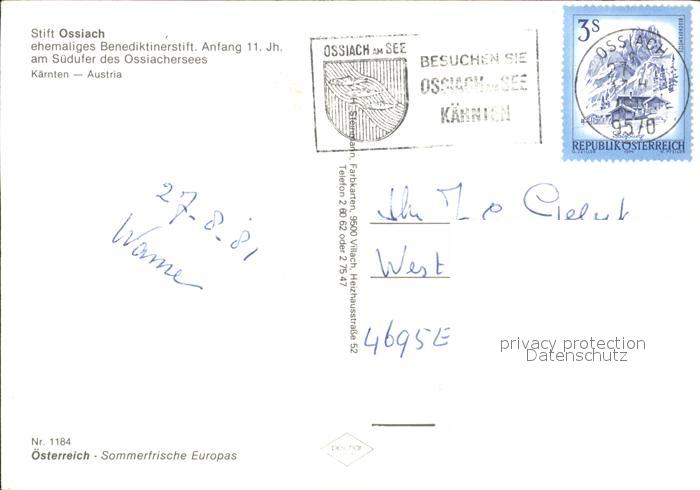 Stift Ossiach
ehemaliges Benediktinerstift. Anfang 11. Jh.
am Südufer des Ossiachersees
Kärnten — Austria
OSSIACH AM SEE
BESUCHEN SIE
OSSIACH AM SEE
KÄRNTEN
3S
OSSIACH
9570
REPUBLIK ÖSTERREICH
H. Steinmann, Farbkarten, 9500 Villach, Heizhausstraße 52
Telefon 2 60 62 oder 2 75 47
27-8-81
West
4695E
privacy protection
Datenschutz
Nr. 1184
Österreich - Sommerfrische Europas